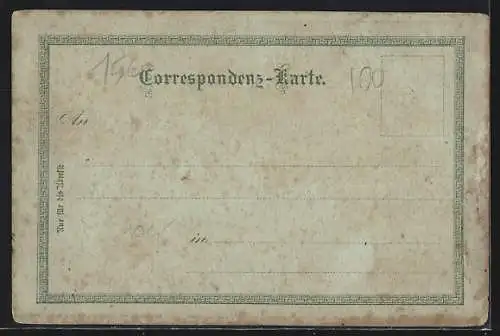 Correspondenz-Karte.
160
An
Nur für die Adresse
in